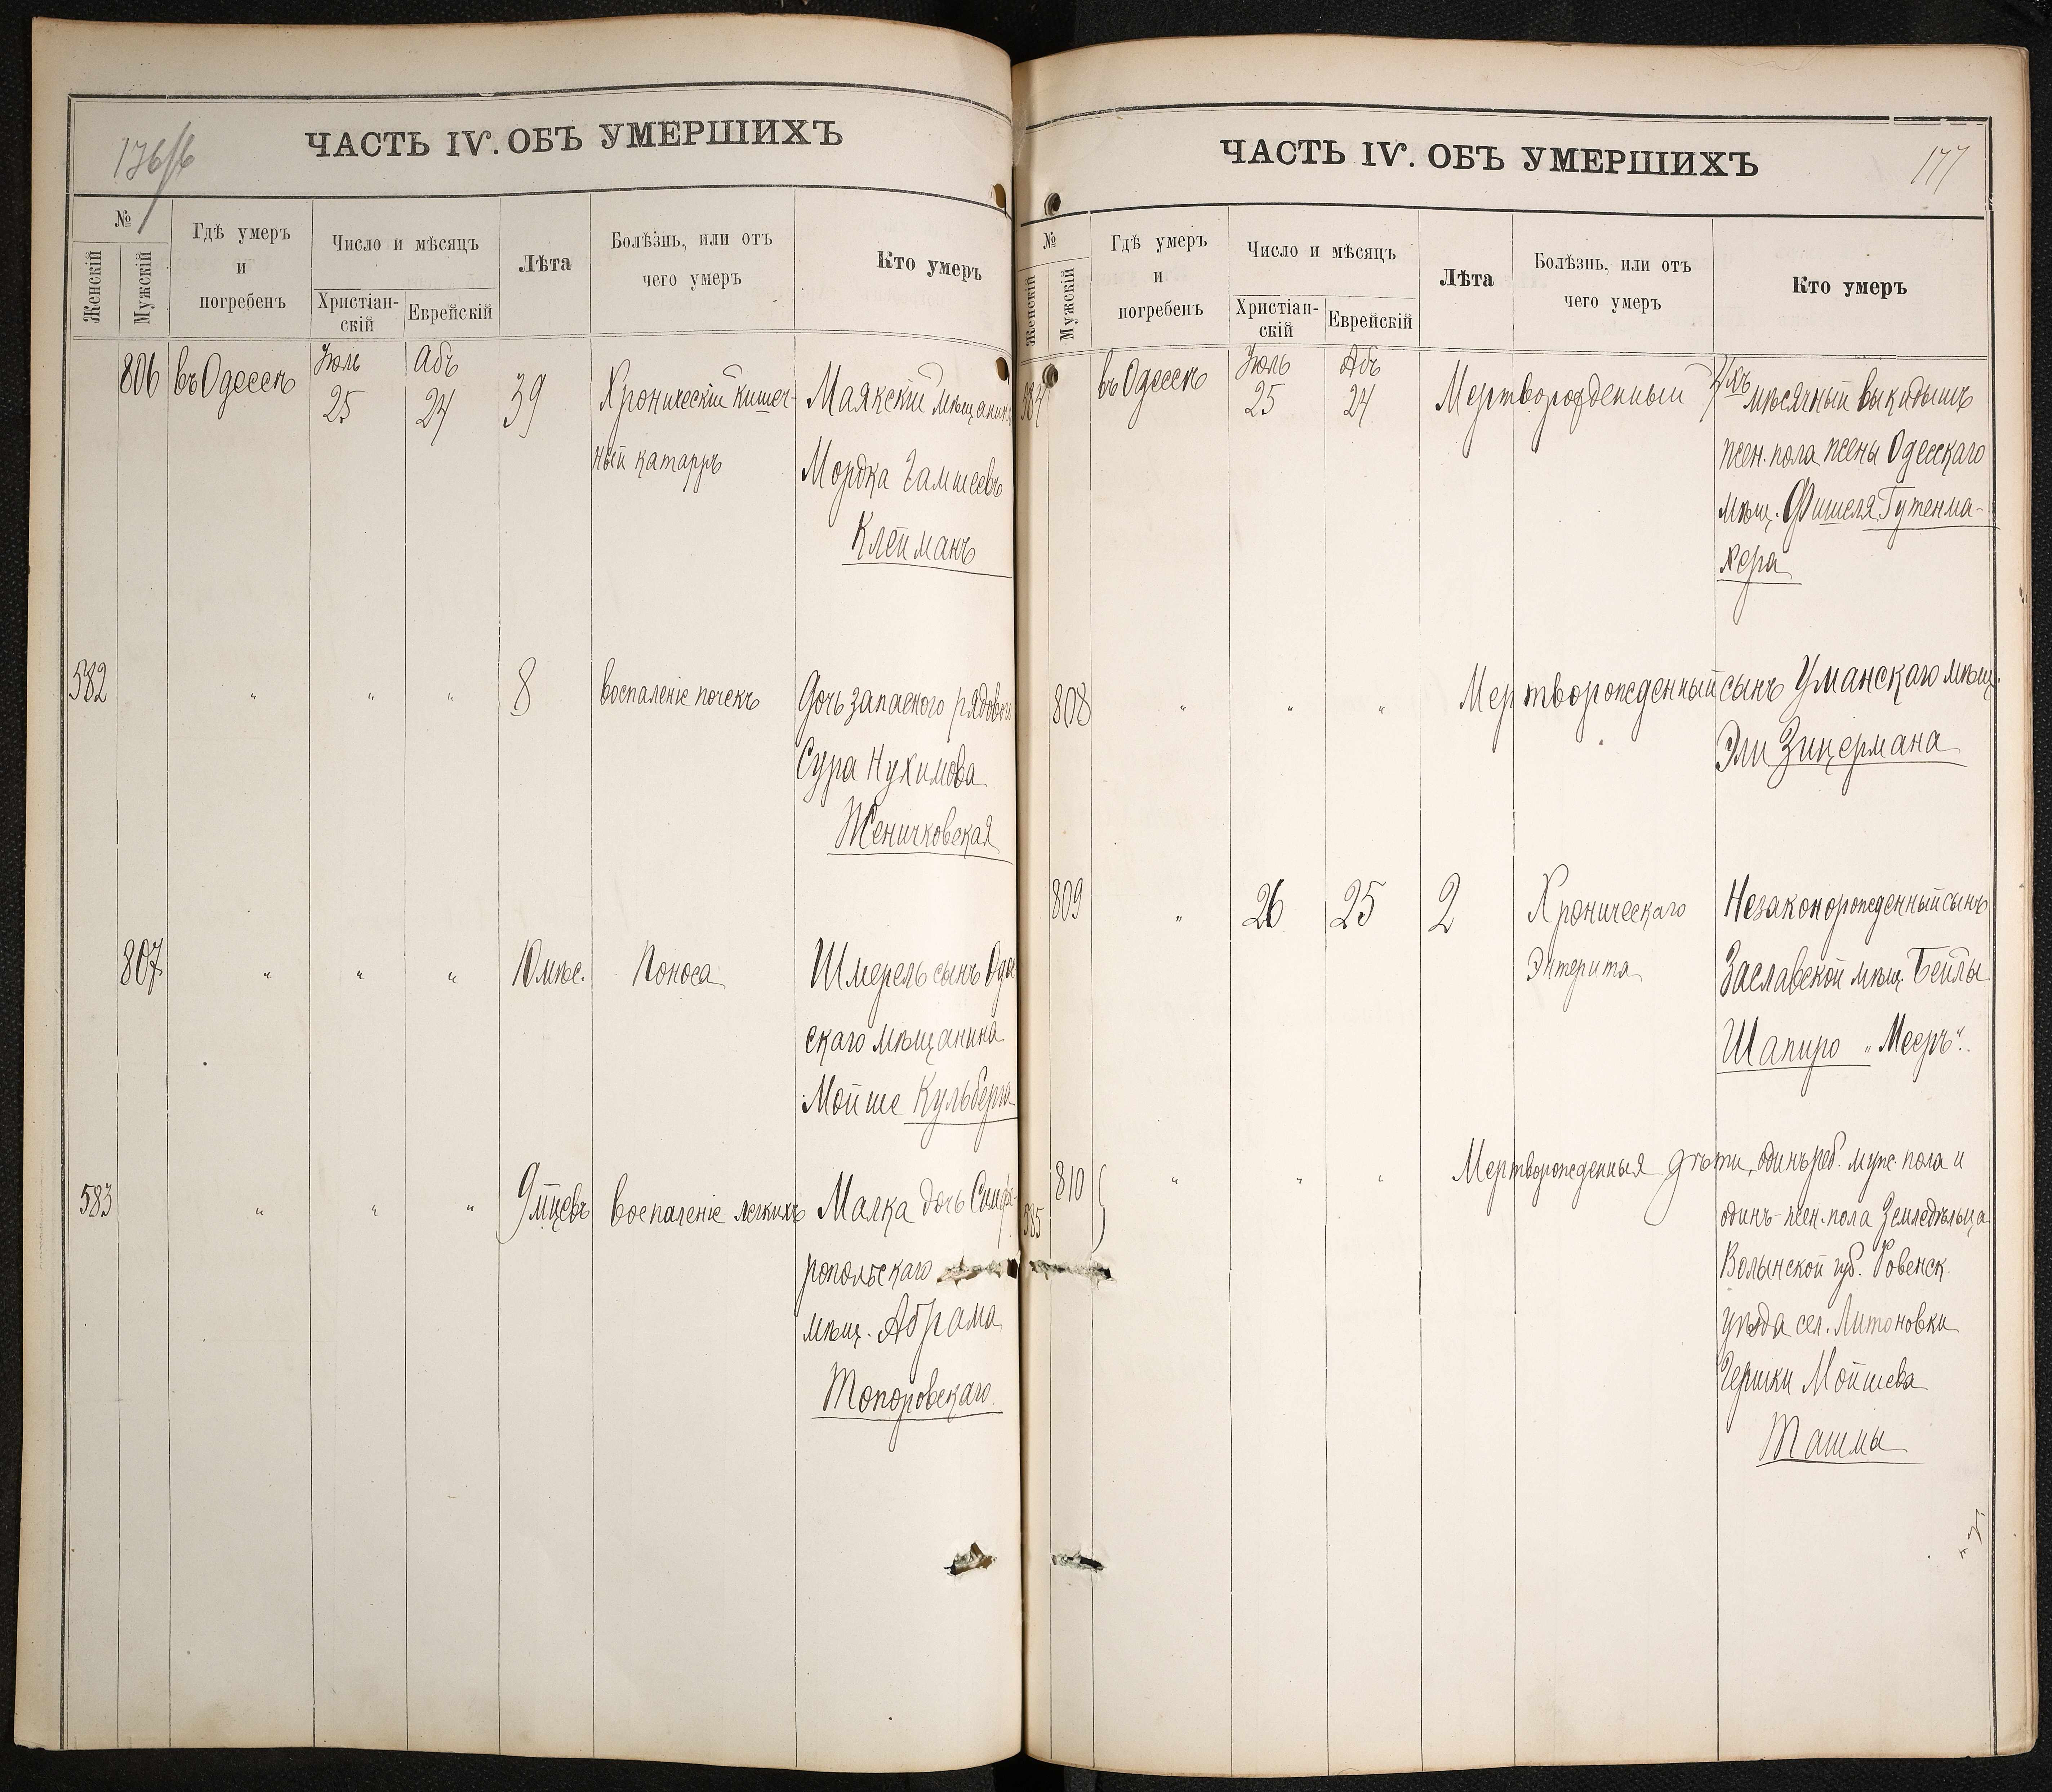 ЧАСТЬ IV. ОБЪ УМЕРШИХЪ
№
Женскій
Мужскій
Гдѣ умеръ
и
погребенъ
Число и мѣсяцъ
Христіан-
скій
Еврейскій
Лѣта
Болѣзнь, или отъ
чего умеръ
Кто умеръ
806 въ Одессѣ Іюль 25 Абъ 24 39 Хроническій кишеч- Маякскій мѣщанинъ
ный катарръ Мордка
Клейманъ
582 " " " 8 воспаленіе почекъ Дочь запасного рядового
Сура Нухимова
Женичковская
807 " " " 10 мѣс. Поноса Шмерель сынъ Одес
скаго мѣщанина
Мойше Кульберга
583 " " " 9 мцевъ воспаленіе легкихъ Малка дочь Симфе-
ропольскаго
мѣщ. Абрама
Топоровскаго
ЧАСТЬ IV. ОБЪ УМЕРШИХЪ
177
№
Женскій
Мужскій
Гдѣ умеръ
и
погребенъ
Число и мѣсяцъ
Христіан-
скій
Еврейскій
Лѣта
Болѣзнь, или отъ
чего умеръ
Кто умеръ
584 въ Одессѣ Іюль 25 Абъ 24 Мертворожденный мѣсячный выкидышъ
жен. пола жены Одесскаго
мѣщ. Фишеля Гутенма-
хера
808 " " " Мертворожденный сынъ Уманскаго мѣщ.
Эли Зицермана
809 " 26 25 2 Хроническаго Незаконорожденный сынъ
Энтерита Заславской мѣщ. Бейлы
Шапиро „Мееръ“.
810 " " " Мертворожденныя дѣти, одинъ реб. муж. пола и
585 одинъ-жен. пола Земледѣльца
Волынской губ. Ровенск.
уѣзда сел. Литоновки
Гершки Мойшева
Ташмы